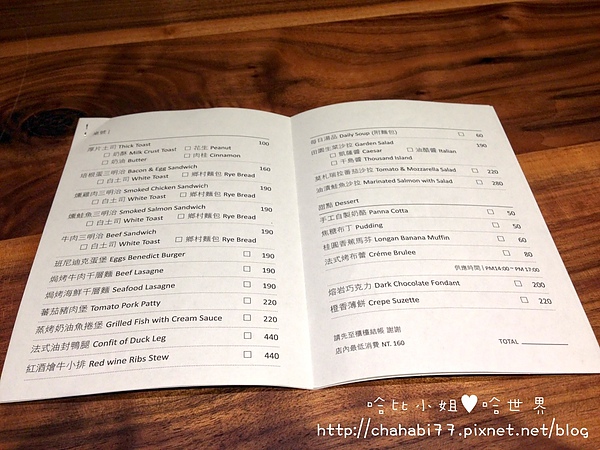 桌號 |
厚片土司 Thick Toast 100
□ 奶酥 Milk Crust Toast □ 花生 Peanut
□ 奶油 Butter □ 肉桂 Cinnamon
培根蛋三明治 Bacon & Egg Sandwich 160
□ 白土司 White Toast □ 鄉村麵包 Rye Bread
燻雞肉三明治 Smoked Chicken Sandwich 190
□ 白土司 White Toast □ 鄉村麵包 Rye Bread
燻鮭魚三明治 Smoked Salmon Sandwich 190
□ 白土司 White Toast □ 鄉村麵包 Rye Bread
牛肉三明治 Beef Sandwich 190
□ 白土司 White Toast □ 鄉村麵包 Rye Bread
班尼迪克蛋堡 Eggs Benedict Burger □ 190
焗烤牛肉千層麵 Beef Lasagne □ 190
焗烤海鮮千層麵 Seafood Lasagne □ 190
蕃茄豬肉堡 Tomato Pork Patty □ 220
蒸烤奶油魚捲堡 Grilled Fish with Cream Sauce □ 220
法式油封鴨腿 Confit of Duck Leg □ 440
紅酒燴牛小排 Red wine Ribs Stew □ 440
每日湯品 Daily Soup (附麵包) □ 60
田園生菜沙拉 Garden Salad 190
□ 凱薩醬 Caesar □ 油醋醬 Italian
□ 千島醬 Thousand Island
莫札瑞拉蕃茄沙拉 Tomato & Mozzarella Salad □ 220
油漬鮭魚沙拉 Marinated Salmon with Salad □ 280
甜點 Dessert
手工自製奶酪 Panna Cotta □ 50
焦糖布丁 Pudding □ 50
桂圓香蕉馬芬 Longan Banana Muffin □ 60
法式烤布蕾 Crème Brulee □ 80
供應時間 | PM14:00 ~ PM 17:00
熔岩巧克力 Dark Chocolate Fondant □ 200
橙香薄餅 Crepe Suzette □ 220
請先至櫃檯結帳 謝謝
店內最低消費 NT. 160 TOTAL
哈比小姐♥哈世界
http://chahabi77.pixnet.net/blog